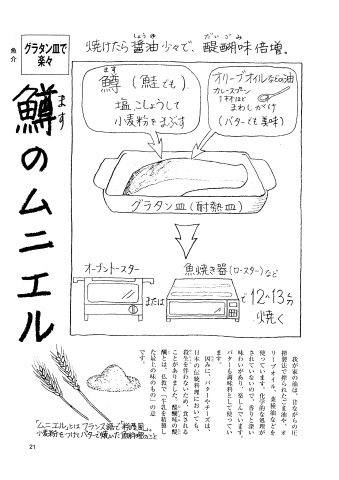 魚介
グラタン皿で
楽々
鱒のムニエル
ます
焼けたら醤油少々で、醍醐味倍増。
しょうゆ
だいごみ
鱒(鮭でも)
ます
塩、こしょうして
小麦粉をまぶす
オリーブオイルなどの油
カレースプーン
1本ほど
まわしがけ
(バターでも美味)
グラタン皿(耐熱皿)
オーブントースター
または
魚焼き器(ロースター)など
で12〜13分
焼く
我が家の油は、昔ながらの圧
搾製法で搾られたごま油や、オ
リーブオイル、菜種油などを
使っています。化学的な処理が
されていないので、香りと深い
味わいがあり、楽しんでいます。
バターも調味料として使ってい
ます。
因みに、バターやチーズは、
日本の伝統料理においても、
殺生を伴わないため、食される
ことがありました。醍醐味の醍
醐とは、仏教で「牛乳を精製し
た最上の味のもの」の意
です。
"ムニエル"とは フランス語で"粉屋風"。
小麦粉をつけてバターで焼いた魚料理のこと
21